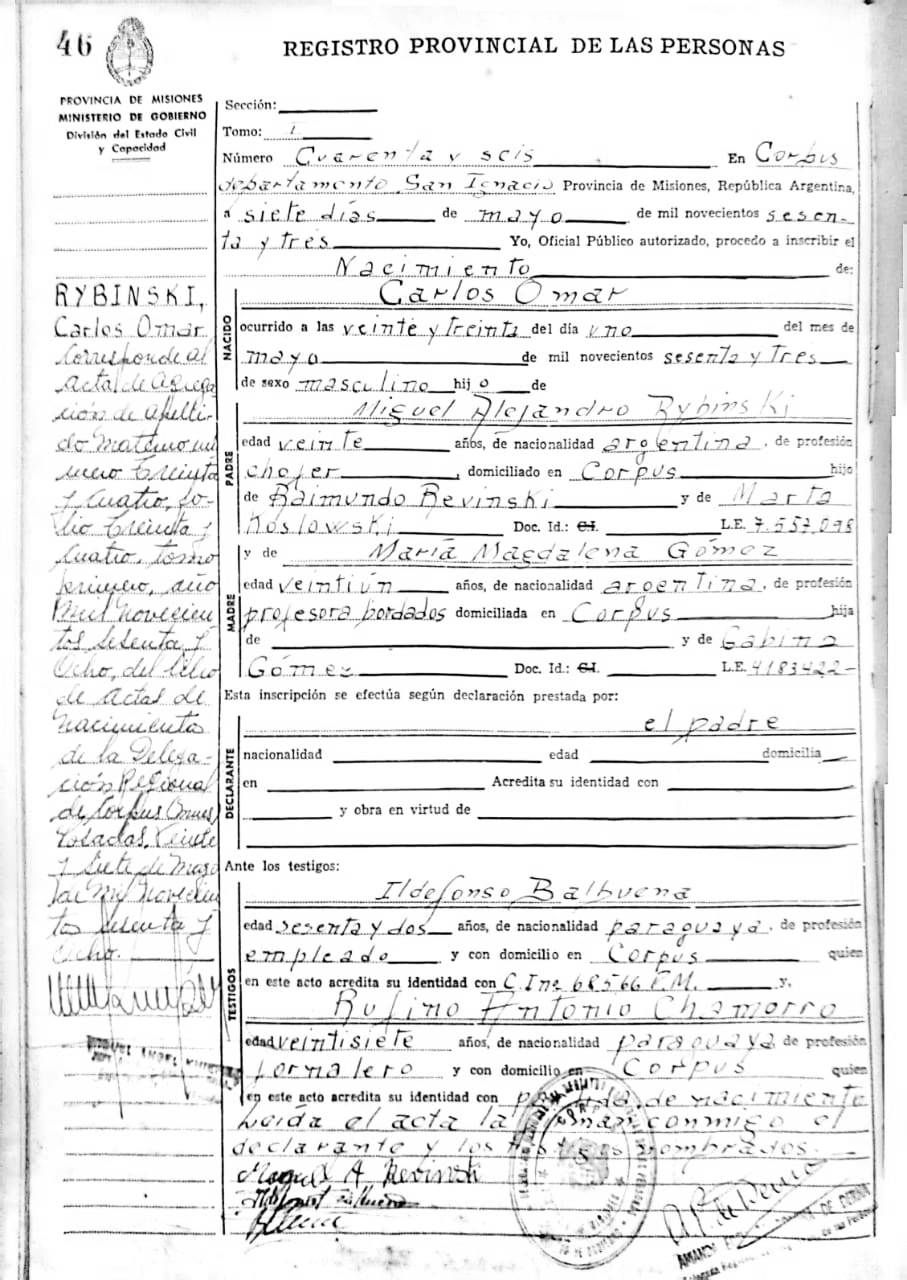 46
REGISTRO PROVINCIAL DE LAS PERSONAS
PROVINCIA DE MISIONES
MINISTERIO DE GOBIERNO
División del Estado Civil
y Capacidad
RYBINSKI,
Carlos Omar
Corresponde al
acta de Agrega
ción de apelli-
do Materno nu
mero treinta
y cuatro, fo-
lio treinta y
cuatro, tomo
primero, año
Mil novecien
tos sesenta y
Ocho, del libro
de actas de
nacimientos
de la Delega-
ción Regional
de Corpus
Posadas, Veinte
y siete de
de Mil novecien
tos sesenta y
Ocho.
Sección:
Tomo: I
Número Cuarenta y seis En Corpus
departamento San Ignacio Provincia de Misiones, República Argentina,
a siete días de mayo de mil novecientos sesen-
ta y tres Yo, Oficial Público autorizado, procedo a inscribir el
Nacimiento de:
NACIDO
Carlos Omar
ocurrido a las veinte y treinta del día uno del mes de
mayo de mil novecientos sesenta y tres
de sexo masculino hijo de
PADRE
Miguel Alejandro Rybinski
edad veinte años, de nacionalidad argentina, de profesión
chofer, domiciliado en Corpus hijo
de Raimundo Revinski y de Marta
Koslowski Doc. Id.: C.I. L.E. 7.557.098
MADRE
y de María Magdalena Gómez
edad veintiún años, de nacionalidad argentina, de profesión
profesora bordados domiciliada en Corpus hija
de y de Gabina
Gómez Doc. Id.: C.I. L.E. 4183422-
Esta inscripción se efectúa según declaración prestada por:
DECLARANTE
el padre
nacionalidad edad domicilia
en Acredita su identidad con
y obra en virtud de
Ante los testigos:
TESTIGOS
Ildefonso Balbuena
edad sesenta y dos años, de nacionalidad paraguaya, de profesión
empleado y con domicilio en Corpus quien
en este acto acredita su identidad con C. Ine 68566 P.M. y,
Rufino Antonio Chamorro
edad veintisiete años, de nacionalidad paraguaya, de profesión
Jornalero y con domicilio en Corpus quien
en este acto acredita su identidad con de nacimiento
Leída el acta la conmigo el
declarante y los nombrados.
Miguel A Revinski